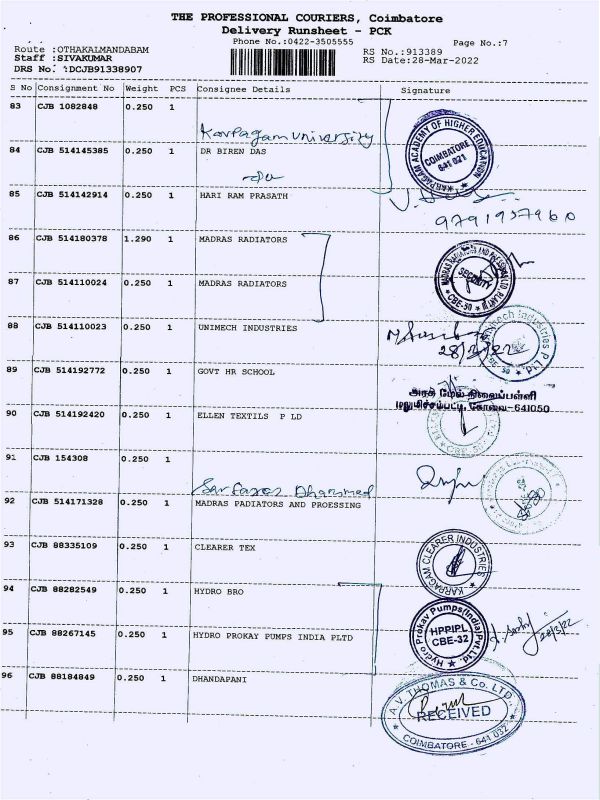 THE PROFESSIONAL COURIERS, Coimbatore
Delivery Runsheet - PCK
Phone No.:0422-3505555
Page No.:7
Route :OTHAKALMANDABAM
RS No.:913389
Staff :SIVAKUMAR
RS Date:28-Mar-2022
DRS No. :DCJB91338907
S No Consignment No Weight PCS Consignee Details Signature
83 CJB 1082848 0.250 1
Karpagam University
KARPAGAM ACADEMY OF HIGHER EDUCATION
COIMBATORE
641 021
84 CJB 514145385 0.250 1 DR BIREN DAS
85 CJB 514142914 0.250 1 HARI RAM PRASATH
9791957960
86 CJB 514180378 1.290 1 MADRAS RADIATORS
SECURITY
CBE-50
87 CJB 514110024 0.250 1 MADRAS RADIATORS
88 CJB 514110023 0.250 1 UNIMECH INDUSTRIES
89 CJB 514192772 0.250 1 GOVT HR SCHOOL
அரசு மேல் நிலைப்பள்ளி
மதுமிச்சம்பட்டி, கோவை-641050
90 CJB 514192420 0.250 1 ELLEN TEXTILS P LD
91 CJB 154308 0.250 1
92 CJB 514171328 0.250 1 MADRAS PADIATORS AND PROESSING
93 CJB 88335109 0.250 1 CLEARER TEX
KARPAGAM CLEARER INDUSTRIES
94 CJB 88282549 0.250 1 HYDRO BRO
Hydro Prokav Pumps(India)Pvt.Ltd
HPPIPL
CBE-32
95 CJB 88267145 0.250 1 HYDRO PROKAY PUMPS INDIA PLTD
96 CJB 88184849 0.250 1 DHANDAPANI
A.V. THOMAS & Co. LTD.,
RECEIVED
COIMBATORE - 641 032